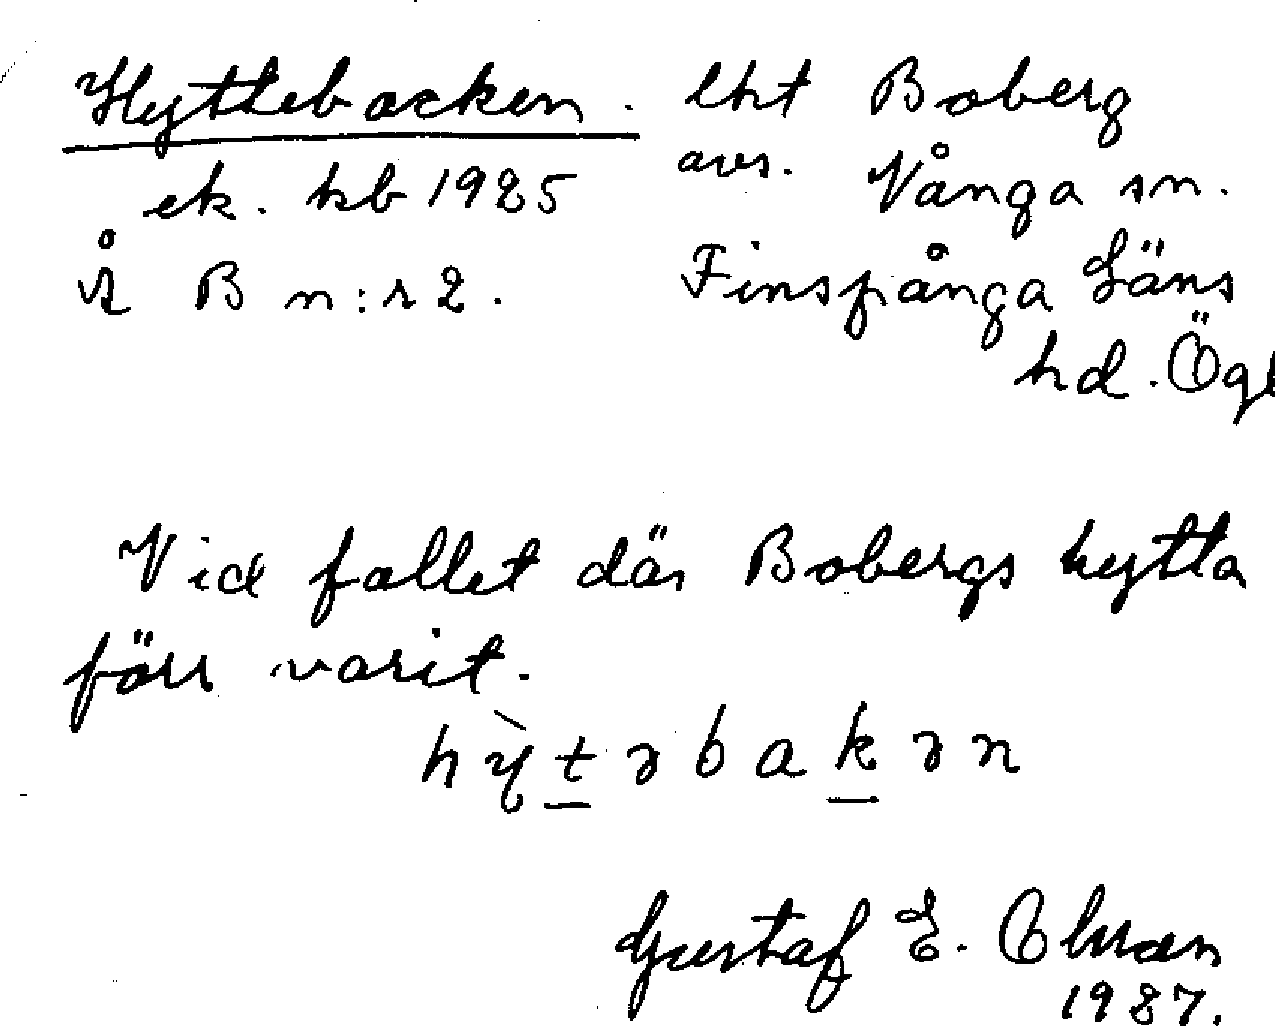 Hyttebacken. lht Boberg
ek. kb 1925 avs. Vånga sn.
Å B n:r 2. Finspånga Läns
hd. Ögl
Vid fallet där Bobergs hytta
förr varit.
hỳtəbakən
Gustaf E.
1987.